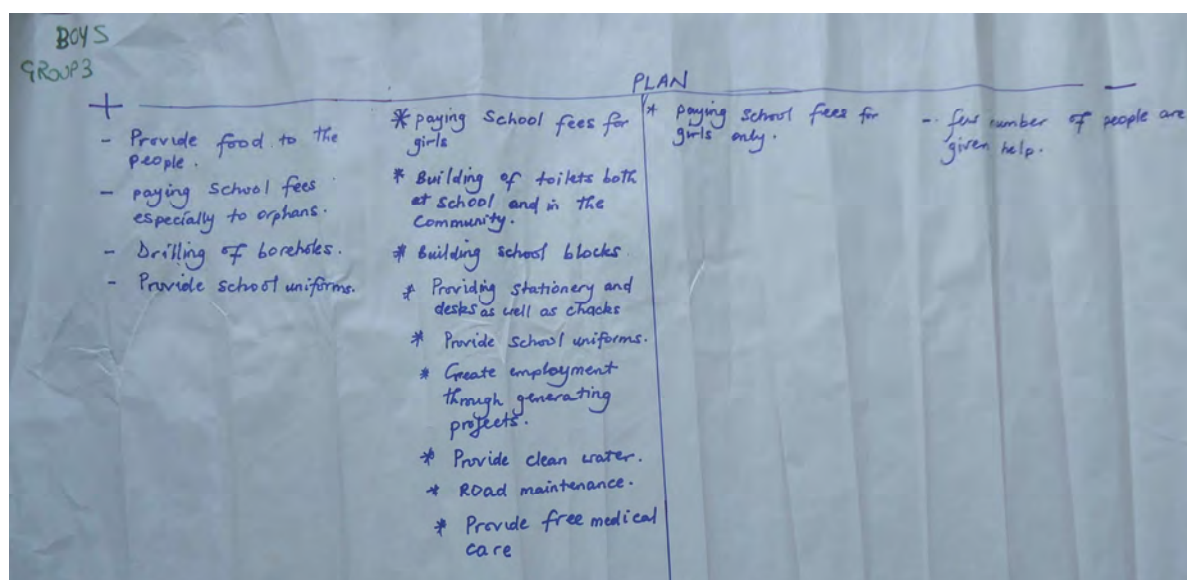 BOYS
GROUP3
PLAN
+
-
- Provide food to the
people.
- paying school fees
especially to orphans.
- Drilling of boreholes.
- Provide school uniforms.
* paying School fees for
girls
* Building of toilets both
at school and in the
Community.
* Building school blocks
* Providing stationery and
desks as well as chacks
* Provide school uniforms.
* Create employment
through generating
projects.
* Provide clean water.
* Road maintenance.
* Provide free medical
care
* paying school fees for
girls only.
- few number of people are
given help.